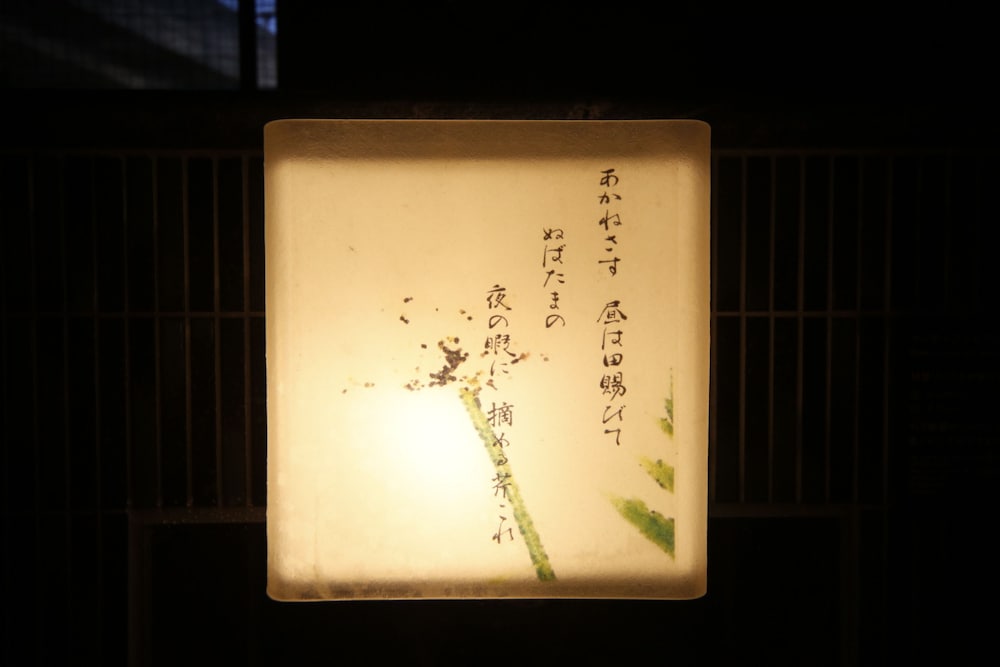 あかねさす　昼は田賜びて
ぬばたまの
夜の暇に　摘める芹これ